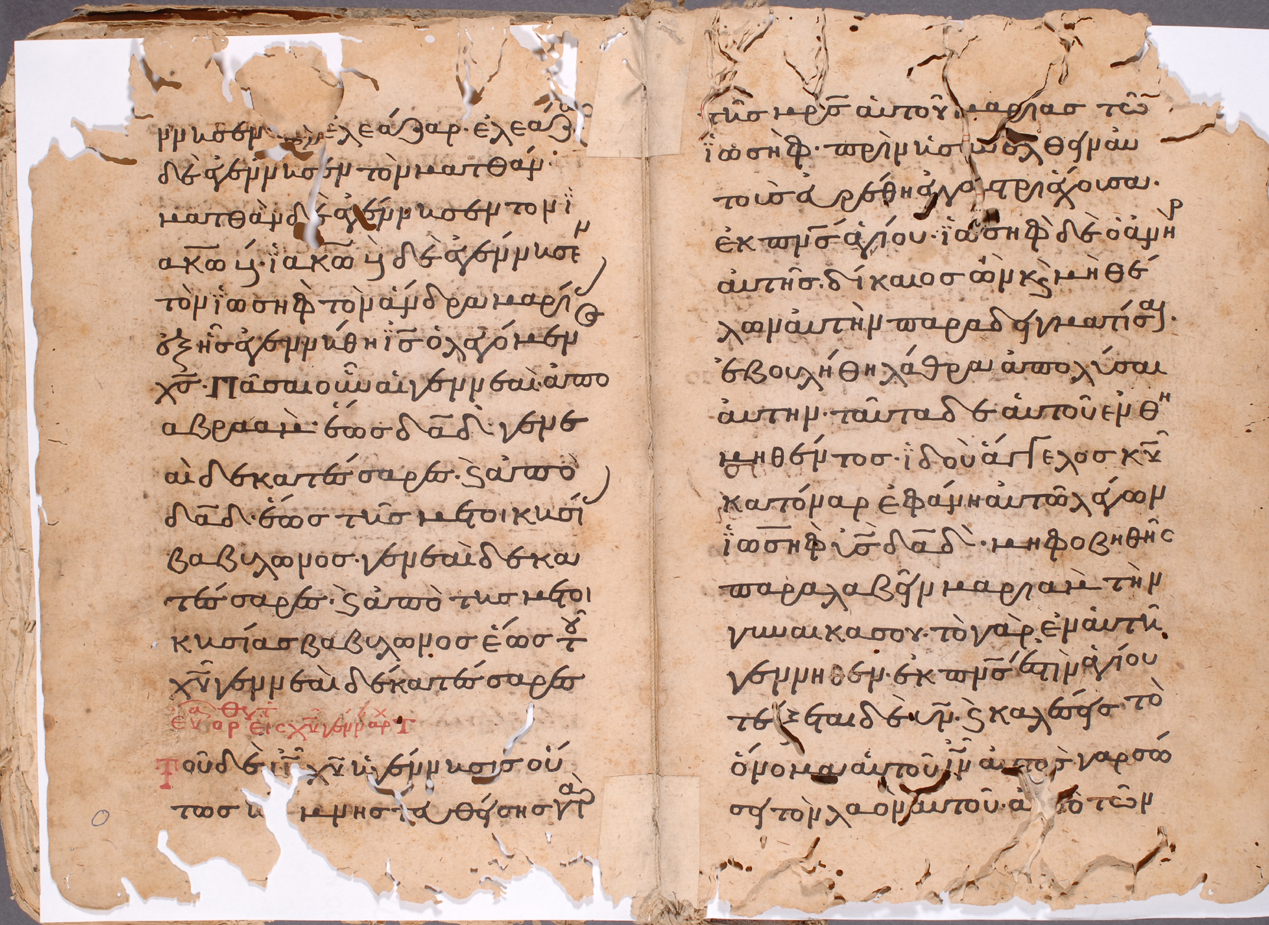 ἐγέννησεν ἐλεάζαρ· ἐλεάζαρ
δὲ ἐγέννησεν τὸν ματθάν·
ματθὰν δὲ ἐγέννησεν τὸν ἰ
ακώβ· ἰακὼβ δὲ ἐγέννησεν
τὸν ἰωσὴφ τὸν ἄνδρα μαρί(ας)
ἐξ ἧς ἐγεννήθη ις̅ ὁ λεγόμεν(ος)
χς̅· Πᾶσαι οὖν αἱ γεννεαὶ ἀπὸ
αβραὰμ· ἕως δα̅δ· γενε
αὶ δεκατέσσαρες· ϗ ἀπὸ
δα̅δ· ἕως τῆς μετοικησί(ας)
βαβυλῶνος· γενεαὶ δεκα
τέσσαρες· ϗ ἀπὸ τῆς μετοι
κησίας βαβυλῶνος ἕως τοῦ
χυ̅ γεννεαὶ δεκατέσσαρες
Τοῦ δὲ ιυ̅ χυ̅ ἡ γέννησις οὕ
τως ἦν· μνηστευθείσης γὰρ
τῆς μρς̅ αὐτοῦ μαρίας τῶ
ἰωσήφ· πρὶν ἢ συνελθεῖν αὐ
τοὺς εὑρέθη ἐν γαστρὶ ἔχουσα·
ἐκ πνς̅ ἁγίου· ἰωσὴφ δὲ ὁ ἀνὴρ
αὐτῆς· δίκαιος ὢν ϗ μὴ θέ
λων αὐτὴν παραδειγματίσαι·
ἐβουλήθη λάθρα ἀπολύσαι
αὐτην· ταῦτα δε αὐτοῦ ενθυ
μηθέντος· ἰδοὺ ἄγγελος κυ̅
κατόναρ ἐφάνη αὐτῶ λέγων
ἰωσὴφ υς̅ δα̅δ· μὴ φοβηθῆς
παραλαβεῖν μαριὰμ τὴν
γυναίκα σου· τὸ γὰρ ἐν αὐτῆ
γεννηθὲν· ἐκ πνς̅ ἐστὶν ἁγίου
τέξεται δὲ υν̅· ϗ καλέσεις τὸ
ὄνομα αὐτοῦ ιν̅ αὐτὸς γὰρ σώ
σει τὸν λαὸν αὐτοῦ· ἀπὸ τῶν